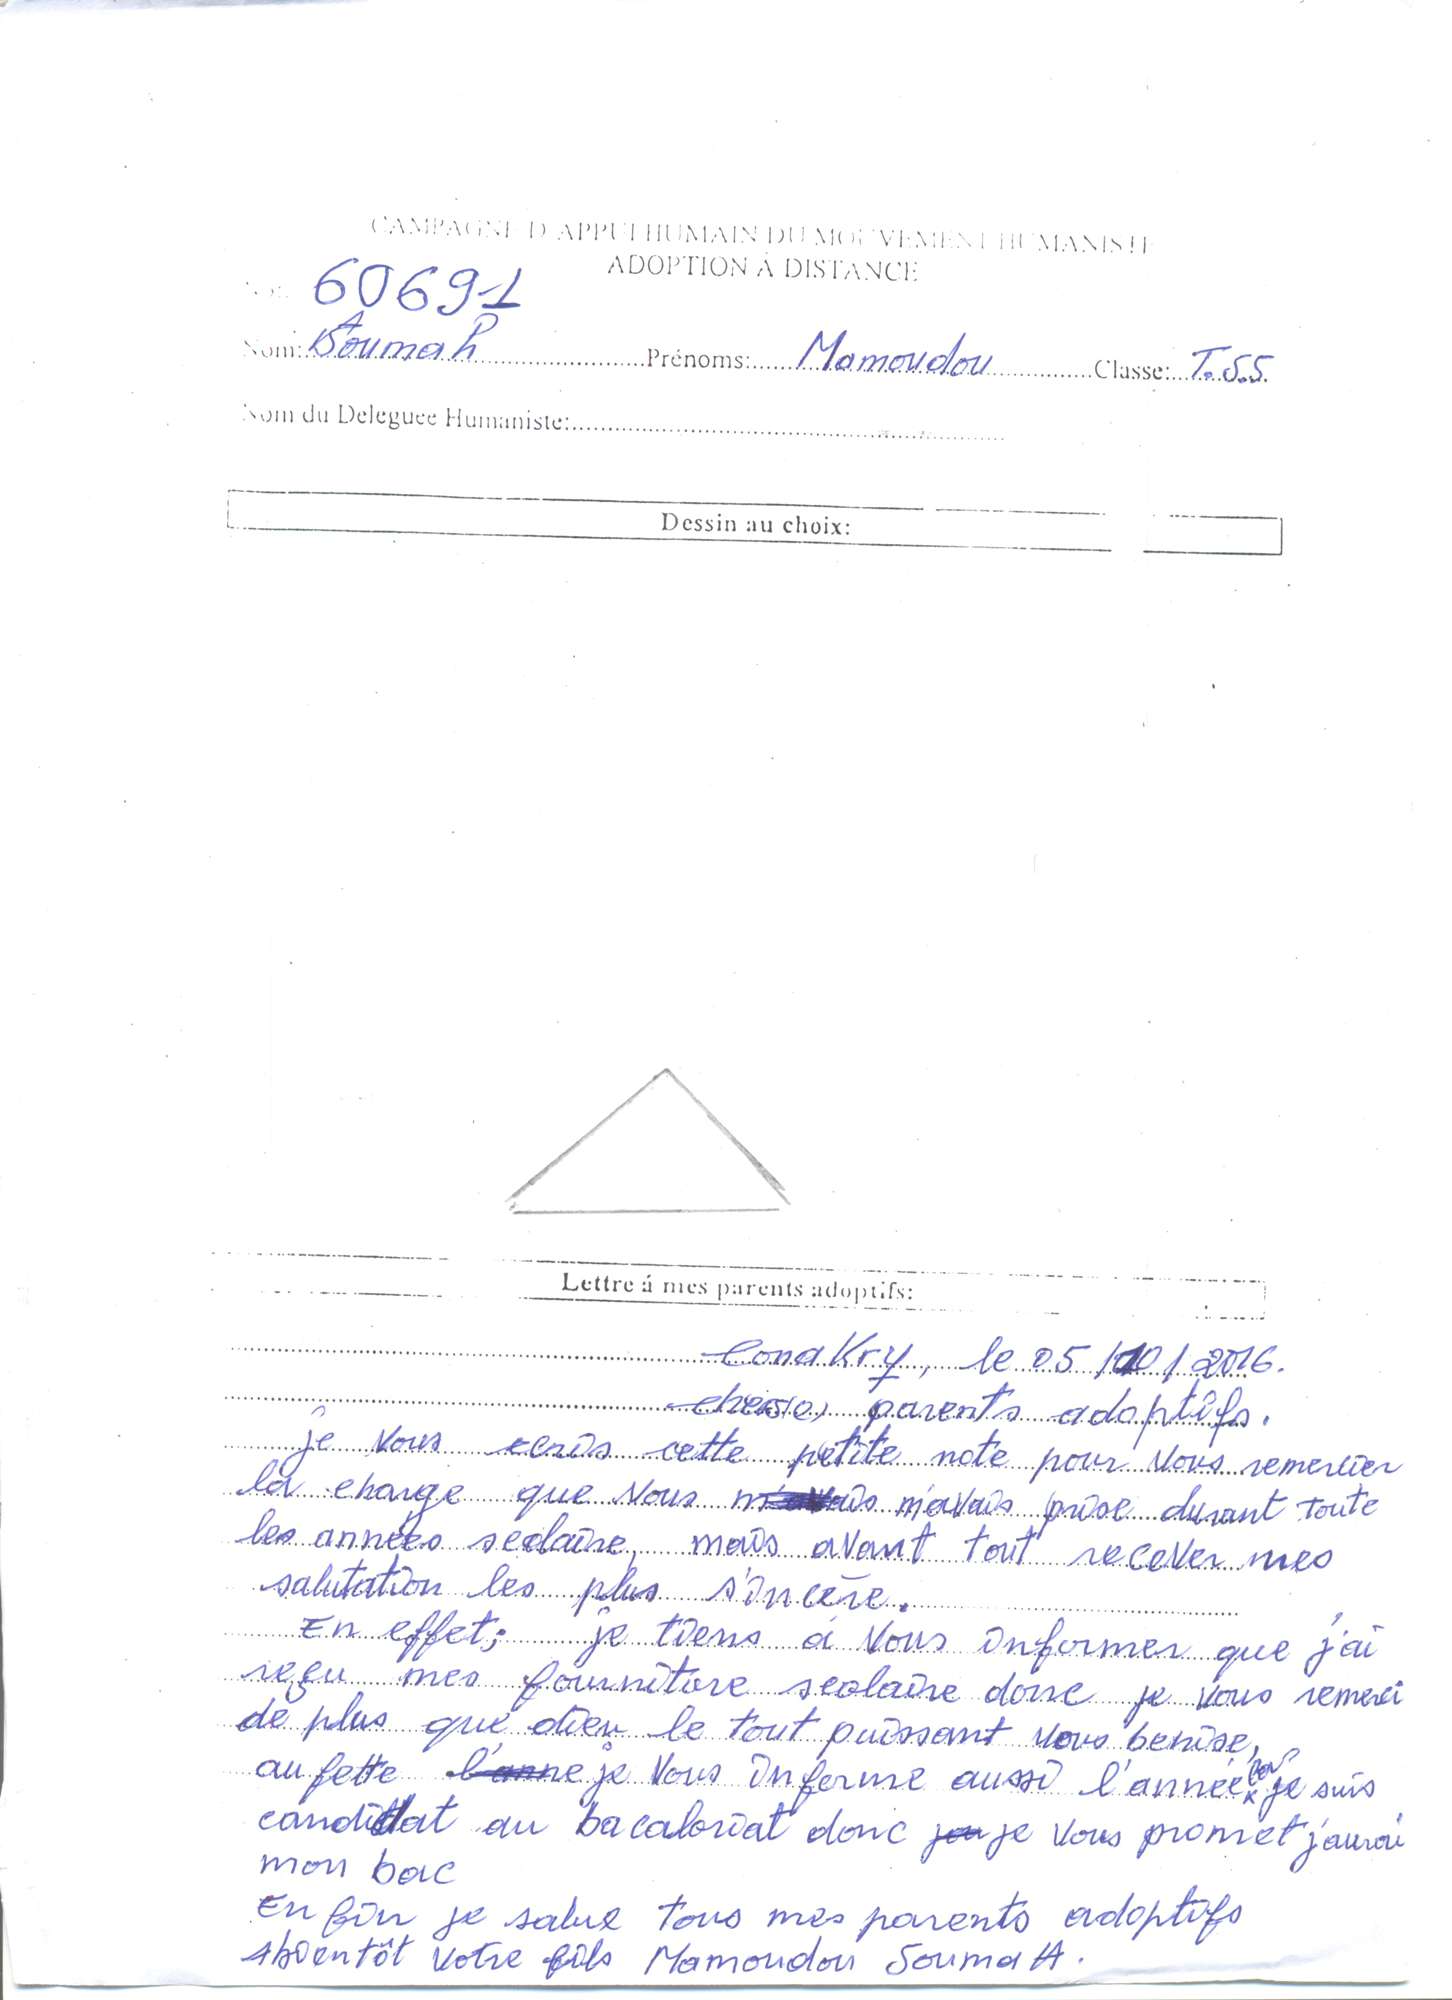 CAMPAGNE D'APPUI HUMAIN DU MOUVEMENT HUMANISTE
ADOPTION À DISTANCE
60691
Nom: Soumah Prénoms: Mamoudou Classe: T.S.S
Nom du Deleguee Humaniste:
Dessin au choix:
Lettre á mes parents adoptifs:
Conakry, le 05/10/2016.
parents adoptifs.
je vous ecris cette petite note pour vous remercier
la charge que vous m'avais prise durant toute
les années scolaire, mais avant tout recever mes
salutation les plus s'incère.
En effet; je tiens á vous informer que j'ai
reçu mes fourniture scolaire donc je vous remerci
de plus que dieu le tout puissant vous benise,
au fette je vous informe aussi l'année je suis
candidat au bacaloriat donc je vous promet j'aurai
mon bac
En fin je salue tous mes parents adoptifs
Abientôt votre fils Mamoudou SoumaH.